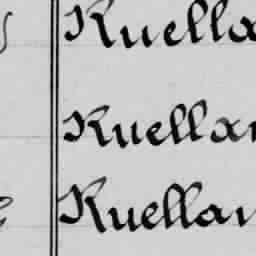 Kuella
Kuellan
Kuellan